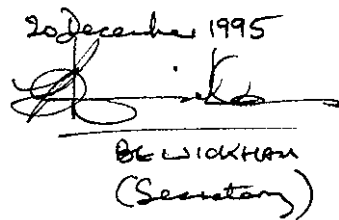 20 December 1995
BE WICKHAM
(Secretary)